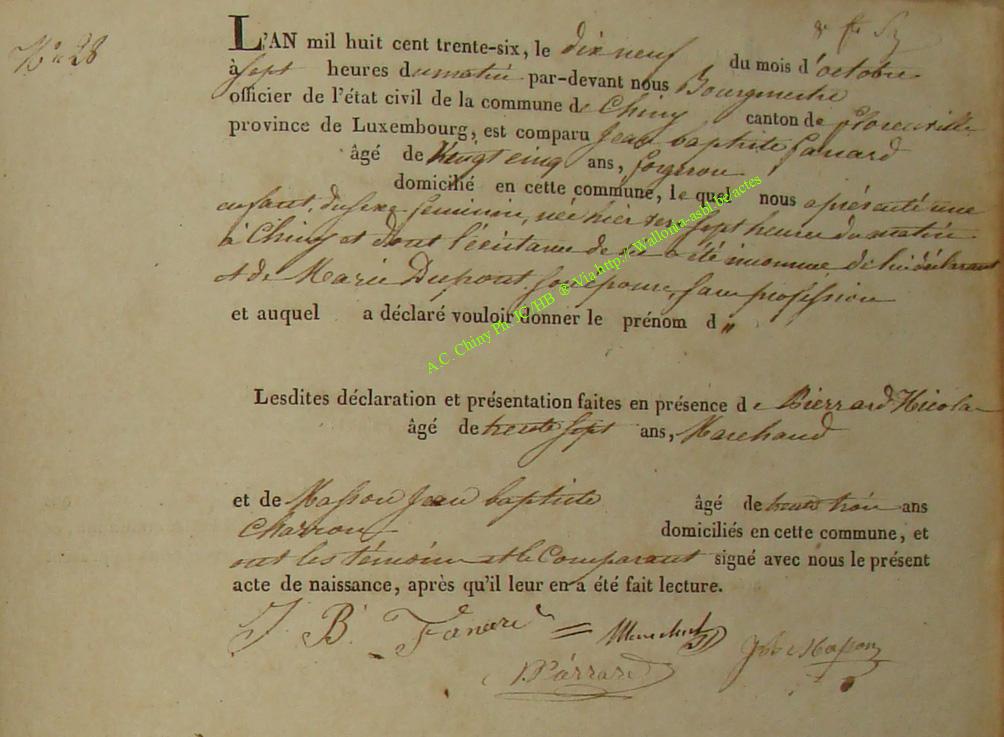 No 28
L'AN mil huit cent trente-six, le dix neuf du mois d'octobre
à sept heures du matin par-devant nous Bourgmestre
officier de l'état civil de la commune de Chiny canton de florenville
province de Luxembourg, est comparu Jean baptiste fanard
âgé de vingt cinq ans, forgeron
domicilié en cette commune, lequel nous a présenté une
enfant du sexe feminin, née hier sept heures du matin
à Chiny et dont l'existance a été inconnue de lui déclarant
et de Marie Dupont son épouse, sans profession
et auquel a déclaré vouloir donner le prénom d "
Lesdites déclaration et présentation faites en présence de Pierrard Nicolas
âgé de trente sept ans, Marchand
et de Masson Jean baptiste âgé de trente trois ans
Charron domiciliés en cette commune, et
ont les témoins et le Comparant signé avec nous le présent
acte de naissance, après qu'il leur en a été fait lecture.
J. B. Fanard
Pierrard
Masson
A.C. Chiny Ph. IC/HB ® Via http://Wallonia-asbl.be/actes